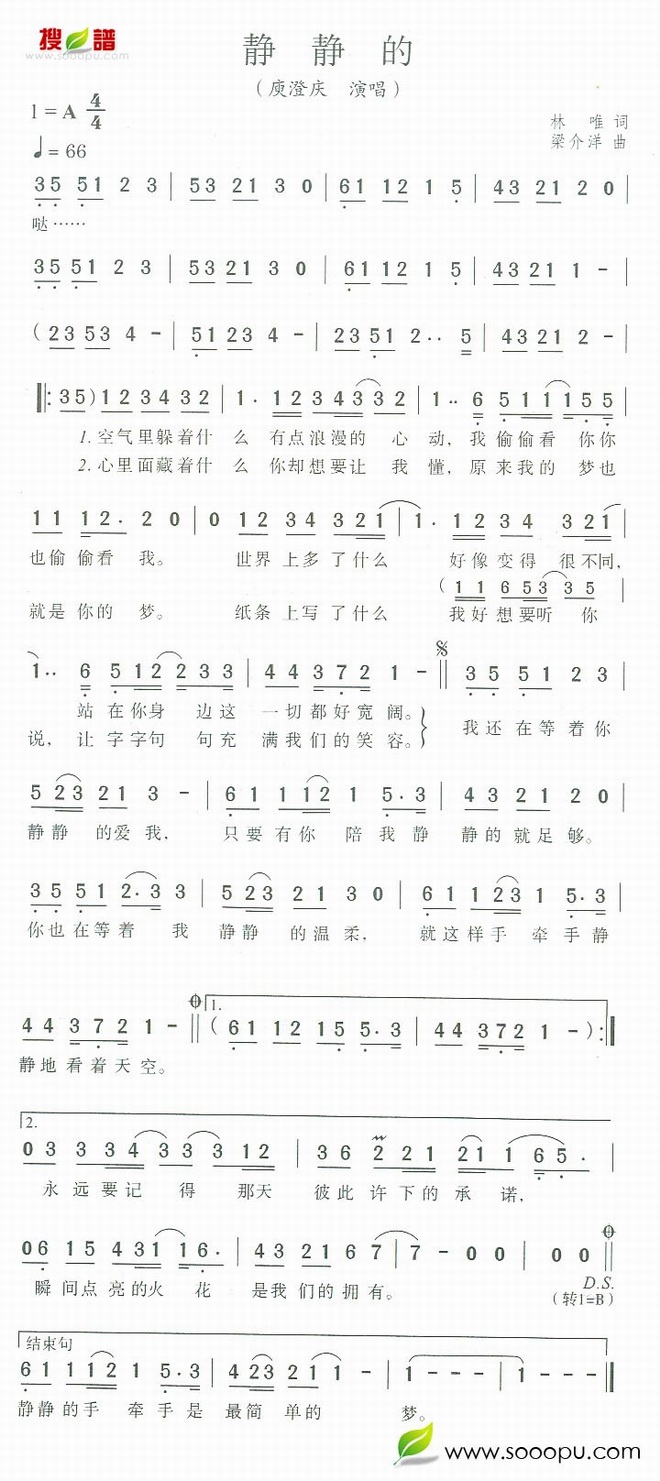 搜譜
www.sooopu.com
静 静 的
（庾澄庆 演唱）
1=A 4/4
♩=66
林 唯 词
梁介洋 曲
35 51 2 3 | 53 21 3 0 | 61 12 1 5 | 43 21 2 0 |
哒……
35 51 2 3 | 53 21 3 0 | 61 12 1 5 | 43 21 1 - |
(23 53 4 - | 51 23 4 - | 23 51 2·· 5 | 43 21 2 - |
‖: 35) 12 34 32 | 1· 12 343 32 | 1·· 6 511 155 |
1.空气里躲着什 么 有点浪漫的 心 动，我 偷偷看 你你
2.心里面藏着什 么 你却想要让 我 懂，原 来我的 梦也
11 12· 2 0 | 0 12 34 321 | 1· 12 34 321 |
也偷 偷看 我。 世界 上多 了什么 好像 变得 很不同，
(11 653 35
就是 你的 梦。 纸条 上写 了什么 我好 想要听 你
1·· 6 512 233 | 44 372 1 - ‖ 35 51 2 3 |
站 在你身 边这 一切 都好宽 阔。
我还 在等 着 你
说，让 字字句 句充 满我 们的笑 容。
523 21 3 - | 61 112 1 5·3 | 43 21 2 0 |
静静 的爱 我， 只要 有你 陪 我静 静的 就足 够。
35 51 2·3 3 | 523 21 3 0 | 61 123 1 5·3 |
你也 在等 着 我 静静 的温 柔， 就这 样手 牵 手静
44 372 1 - ‖ 1. (61 12 15 5·3 | 44 372 1 - ) :‖
静地 看着天 空。
2.
03 334 33 312 | 36 221 21 165· |
永 远要记 得 那天 彼此 许下的 承 诺，
06 15 431 16· | 43 21 67 7 | 7 - 0 0 | 0 0 ‖
瞬 间点 亮的火 花 是我 们的 拥有。
D.S.
（转1=B）
结束句
61 112 1 5·3 | 423 21 1 - | 1 - - - | 1 - - - ‖
静静 的手 牵 手是 最简 单的 梦。
www.sooopu.com